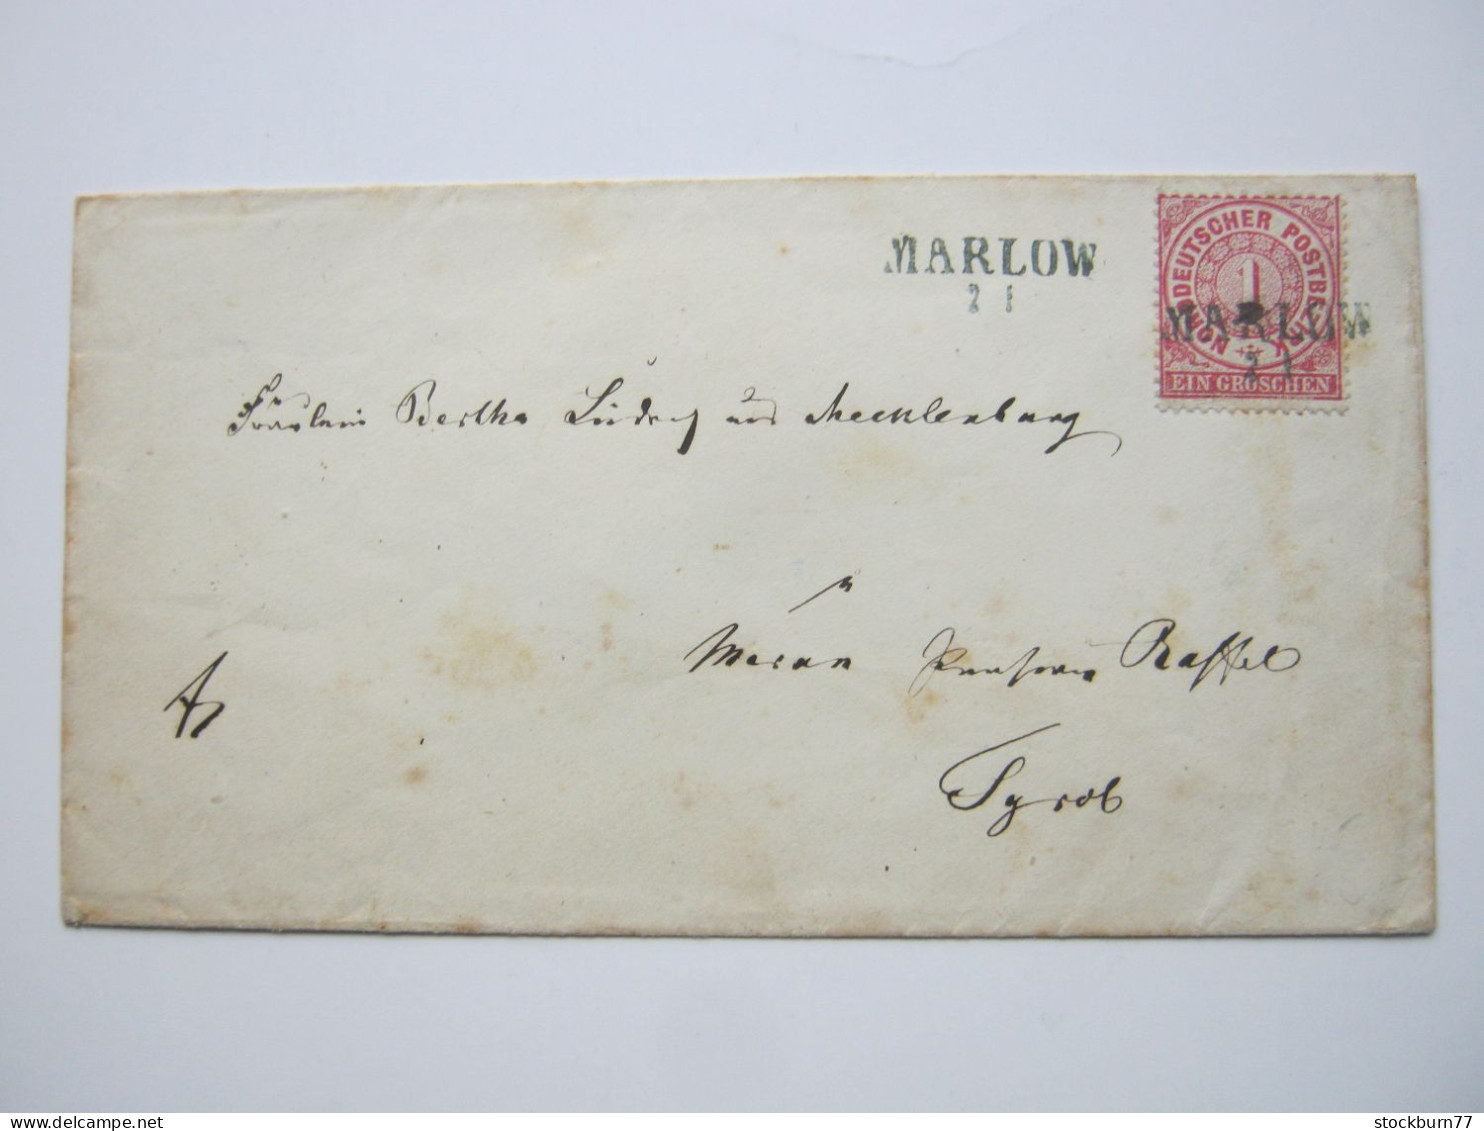 MARLOW
2 1
NORDDEUTSCHER POSTBEZIRK
1
EIN GROSCHEN
MARLOW
2 1
Fräulein Bertha Lüders aus Mecklenburg
Meran Pension Raffel
Tyrol
stockburn77